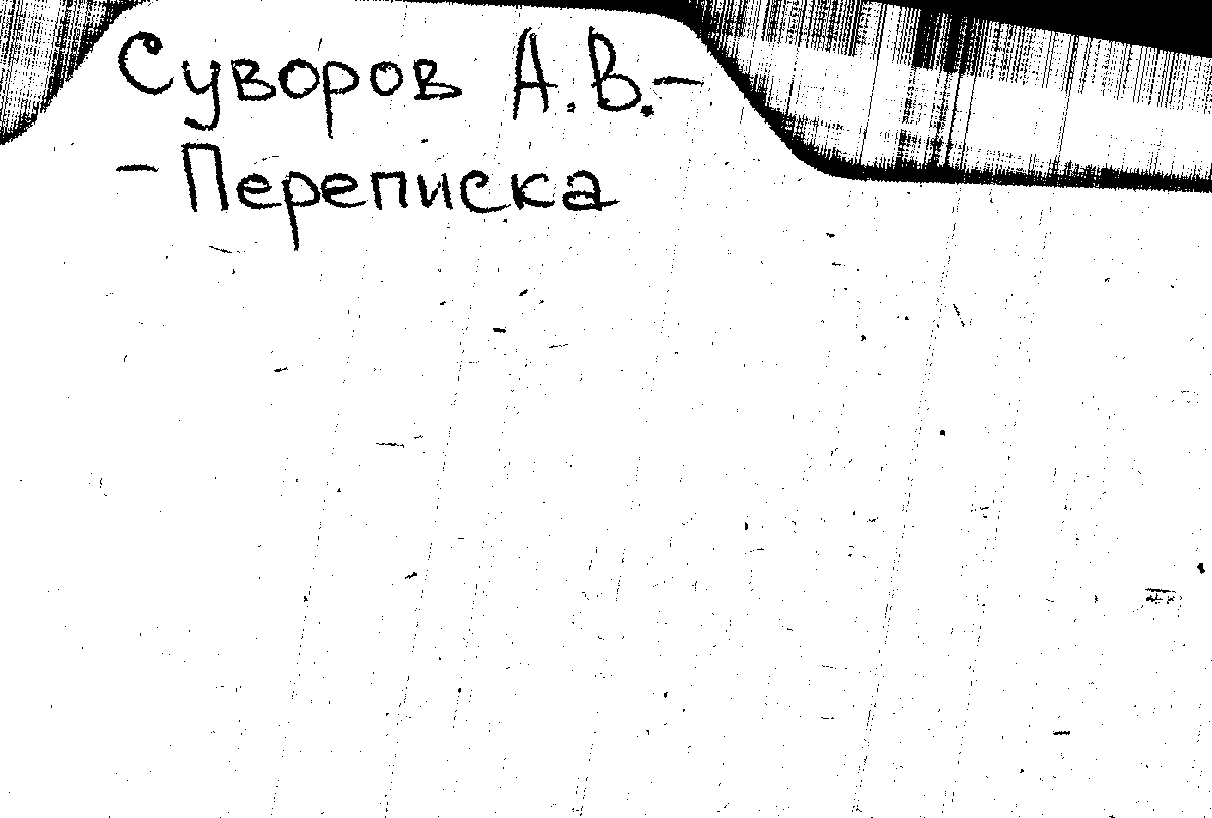 Суворов А.В.-
-Переписка